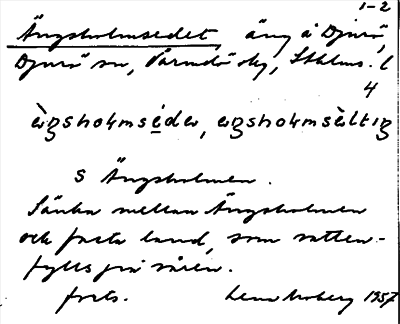 1-2
Ängsholmsedet, äng å Djurö,
Djurö sn, Värmdö skg, Sthlms. l
4
S Ängsholmen.
Sänka mellan Ängsholmen
och fasta land, som vatten-
fylls på våren.
forts. Lena Moberg 1957